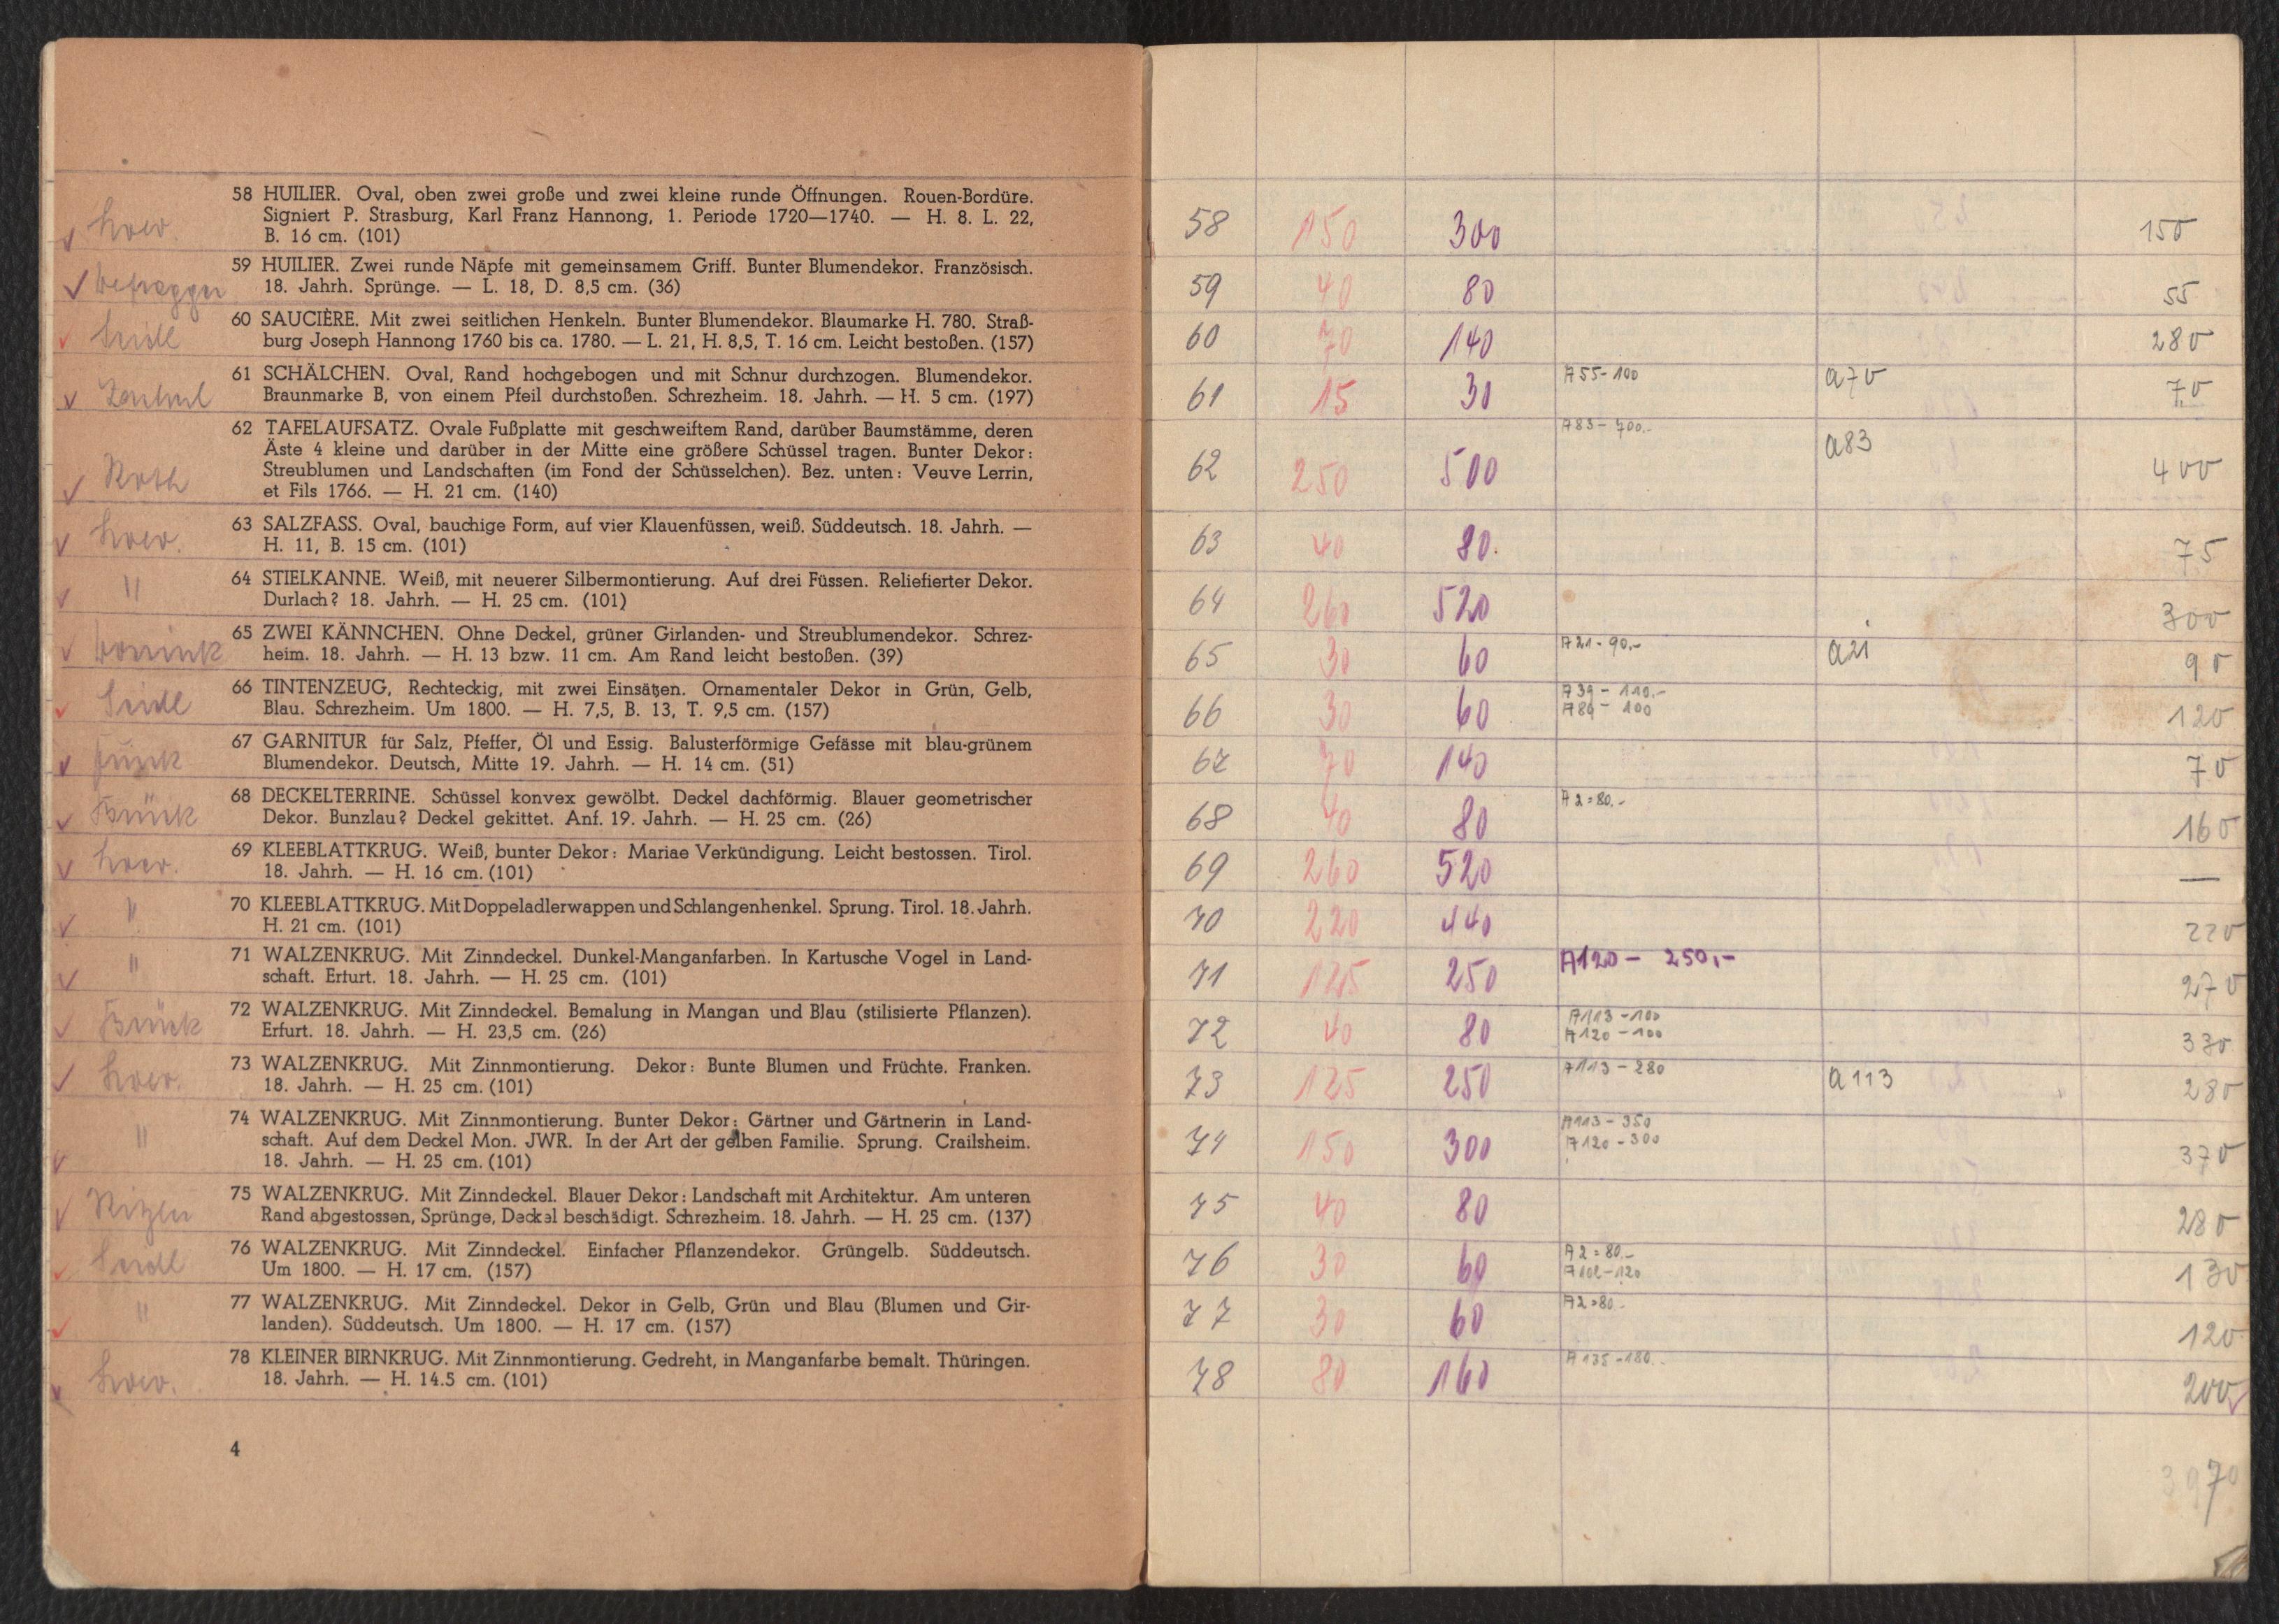 58 HUILIER. Oval, oben zwei große und zwei kleine runde Öffnungen. Rouen-Bordüre.
Signiert P. Strasburg, Karl Franz Hannong, 1. Periode 1720—1740. — H. 8. L. 22,
B. 16 cm. (101)
59 HUILIER. Zwei runde Näpfe mit gemeinsamem Griff. Bunter Blumendekor. Französisch.
18. Jahrh. Sprünge. — L. 18, D. 8,5 cm. (36)
Seidl
60 SAUCIÈRE. Mit zwei seitlichen Henkeln. Bunter Blumendekor. Blaumarke H. 780. Straß-
burg Joseph Hannong 1760 bis ca. 1780. — L. 21, H. 8,5, T. 16 cm. Leicht bestoßen. (157)
61 SCHÄLCHEN. Oval, Rand hochgebogen und mit Schnur durchzogen. Blumendekor.
Braunmarke B, von einem Pfeil durchstoßen. Schrezheim. 18. Jahrh. — H. 5 cm. (197)
Roth
62 TAFELAUFSATZ. Ovale Fußplatte mit geschweiftem Rand, darüber Baumstämme, deren
Äste 4 kleine und darüber in der Mitte eine größere Schüssel tragen. Bunter Dekor:
Streublumen und Landschaften (im Fond der Schüsselchen). Bez. unten: Veuve Lerrin,
et Fils 1766. — H. 21 cm. (140)
63 SALZFASS. Oval, bauchige Form, auf vier Klauenfüssen, weiß. Süddeutsch. 18. Jahrh. —
H. 11, B. 15 cm. (101)
"
64 STIELKANNE. Weiß, mit neuerer Silbermontierung. Auf drei Füssen. Reliefierter Dekor.
Durlach? 18. Jahrh. — H. 25 cm. (101)
65 ZWEI KÄNNCHEN. Ohne Deckel, grüner Girlanden- und Streublumendekor. Schrez-
heim. 18. Jahrh. — H. 13 bzw. 11 cm. Am Rand leicht bestoßen. (39)
Seidl
66 TINTENZEUG, Rechteckig, mit zwei Einsätzen. Ornamentaler Dekor in Grün, Gelb,
Blau. Schrezheim. Um 1800. — H. 7,5, B. 13, T. 9,5 cm. (157)
67 GARNITUR für Salz, Pfeffer, Öl und Essig. Balusterförmige Gefässe mit blau-grünem
Blumendekor. Deutsch, Mitte 19. Jahrh. — H. 14 cm. (51)
Brück
68 DECKELTERRINE. Schüssel konvex gewölbt. Deckel dachförmig. Blauer geometrischer
Dekor. Bunzlau? Deckel gekittet. Anf. 19. Jahrh. — H. 25 cm. (26)
69 KLEEBLATTKRUG. Weiß, bunter Dekor: Mariae Verkündigung. Leicht bestossen. Tirol.
18. Jahrh. — H. 16 cm. (101)
"
70 KLEEBLATTKRUG. Mit Doppeladlerwappen und Schlangenhenkel. Sprung. Tirol. 18. Jahrh.
H. 21 cm. (101)
"
71 WALZENKRUG. Mit Zinndeckel. Dunkel-Manganfarben. In Kartusche Vogel in Land-
schaft. Erfurt. 18. Jahrh. — H. 25 cm. (101)
Brück
72 WALZENKRUG. Mit Zinndeckel. Bemalung in Mangan und Blau (stilisierte Pflanzen).
Erfurt. 18. Jahrh. — H. 23,5 cm. (26)
73 WALZENKRUG. Mit Zinnmontierung. Dekor: Bunte Blumen und Früchte. Franken.
18. Jahrh. — H. 25 cm. (101)
"
74 WALZENKRUG. Mit Zinnmontierung. Bunter Dekor: Gärtner und Gärtnerin in Land-
schaft. Auf dem Deckel Mon. JWR. In der Art der gelben Familie. Sprung. Crailsheim.
18. Jahrh. — H. 25 cm. (101)
75 WALZENKRUG. Mit Zinndeckel. Blauer Dekor: Landschaft mit Architektur. Am unteren
Rand abgestossen, Sprünge, Deckel beschädigt. Schrezheim. 18. Jahrh. — H. 25 cm. (137)
Seidl
76 WALZENKRUG. Mit Zinndeckel. Einfacher Pflanzendekor. Grüngelb. Süddeutsch.
Um 1800. — H. 17 cm. (157)
"
77 WALZENKRUG. Mit Zinndeckel. Dekor in Gelb, Grün und Blau (Blumen und Gir-
landen). Süddeutsch. Um 1800. — H. 17 cm. (157)
78 KLEINER BIRNKRUG. Mit Zinnmontierung. Gedreht, in Manganfarbe bemalt. Thüringen.
18. Jahrh. — H. 14.5 cm. (101)
4
58 150 300 150
59 40 80 55
60 70 140 280
61 15 30 A 55-100 a70 70
62 250 500 A 83-700.- a83 400
63 40 80. 75
64 260 520 300
65 30 60 A 21-90.- a21 90
66 30 60 A 39-110.- 120
A 89-100
67 70 140 70
68 40 80 A 2=80.- 160
69 260 520 —
70 220 440 220
71 125 250 A120 - 250,- 270
72 40 80 A113-100 330
A120-100
73 125 250 A113-280 a113 280
74 150 300 A113-350 370
A120-300
75 40 80 280
76 30 60 A 2=80.- 130
A102-120
77 30 60 A2=80.- 120
78 80 160 A 135-180.- 200
3970